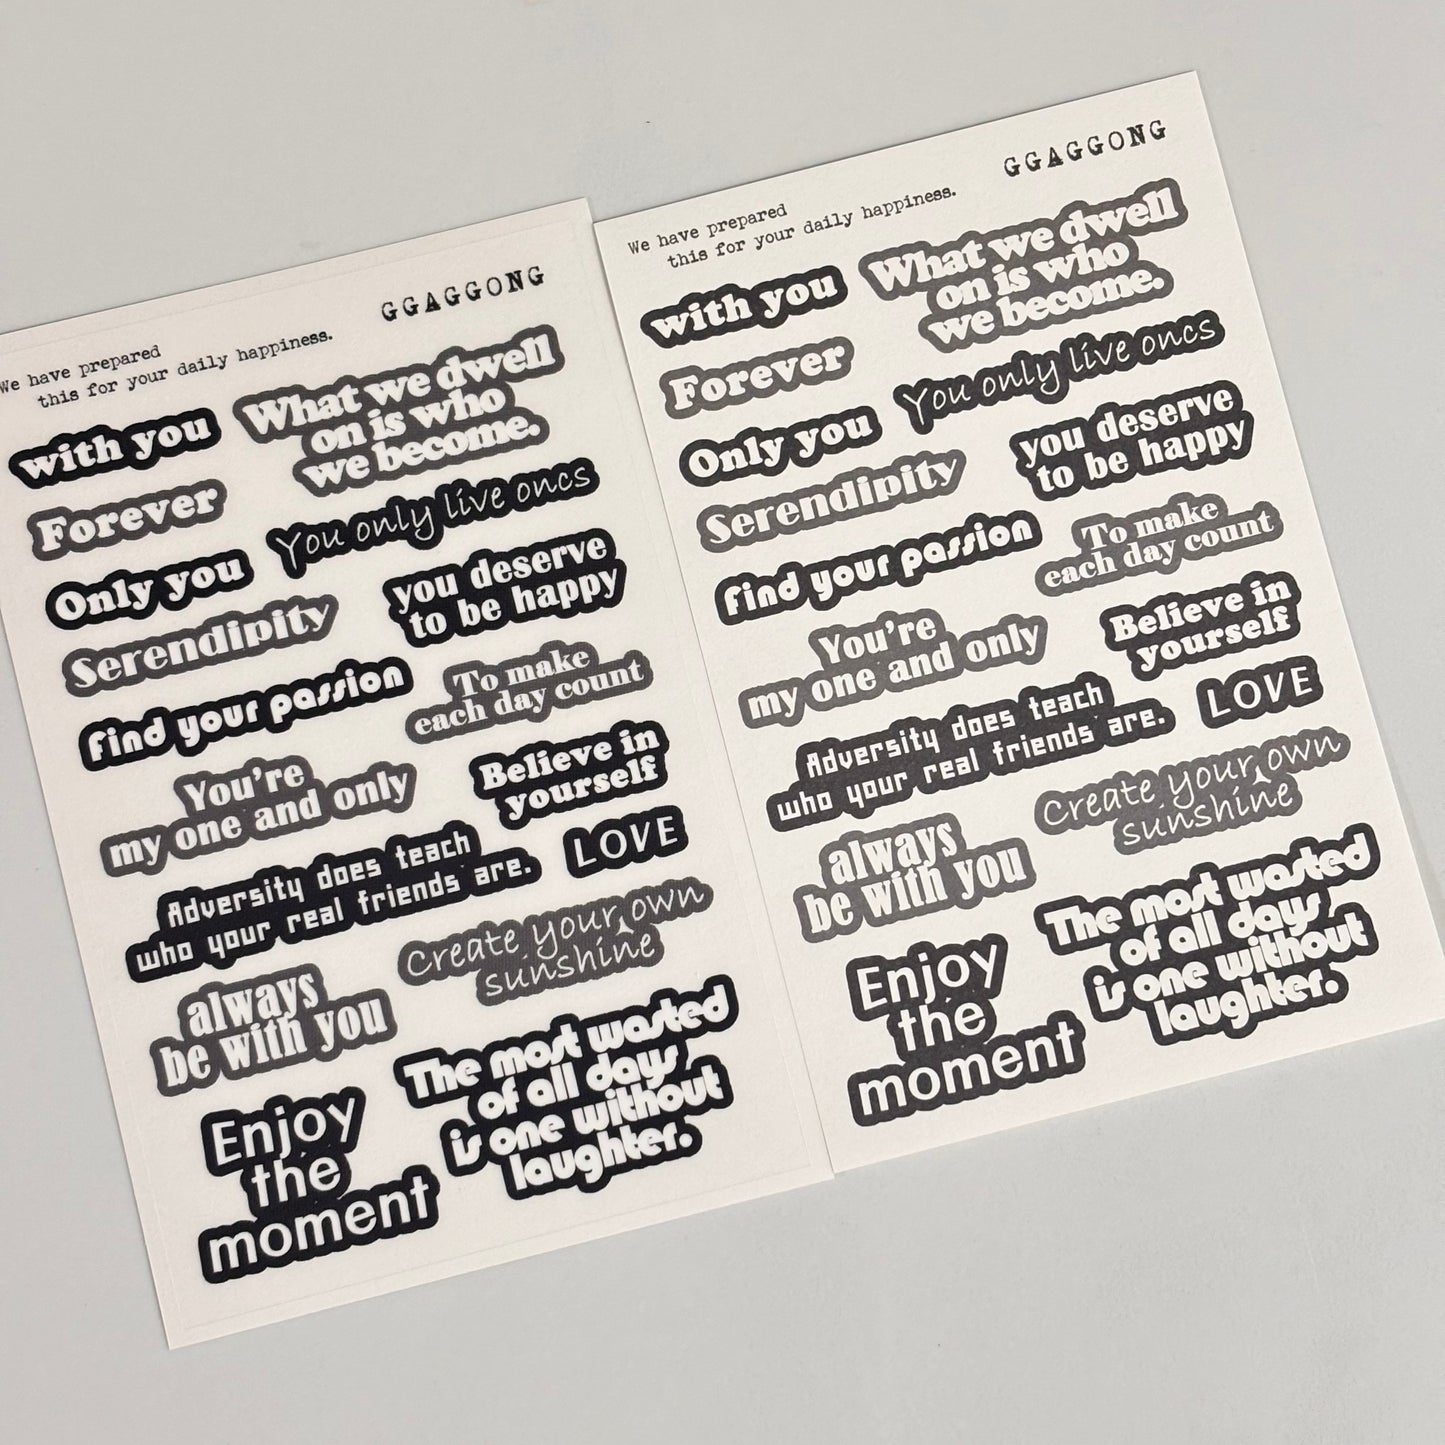 GGAGGONG
We have prepared
this for your daily happiness.
with you
What we dwell
on is who
we become.
Forever
You only live oncs
Only you
you deserve
to be happy
Serendipity
find your passion
To make
each day count
You're
my one and only
Believe in
yourself
Adversity does teach
who your real friends are.
LOVE
Create your own
sunshine
always
be with you
The most wasted
of all days
is one without
laughter.
Enjoy
the
moment
GGAGGONG
We have prepared
this for your daily happiness.
with you
What we dwell
on is who
we become.
Forever
You only live oncs
Only you
you deserve
to be happy
Serendipity
find your passion
To make
each day count
You're
my one and only
Believe in
yourself
Adversity does teach
who your real friends are.
LOVE
Create your own
sunshine
always
be with you
The most wasted
of all days
is one without
laughter.
Enjoy
the
moment